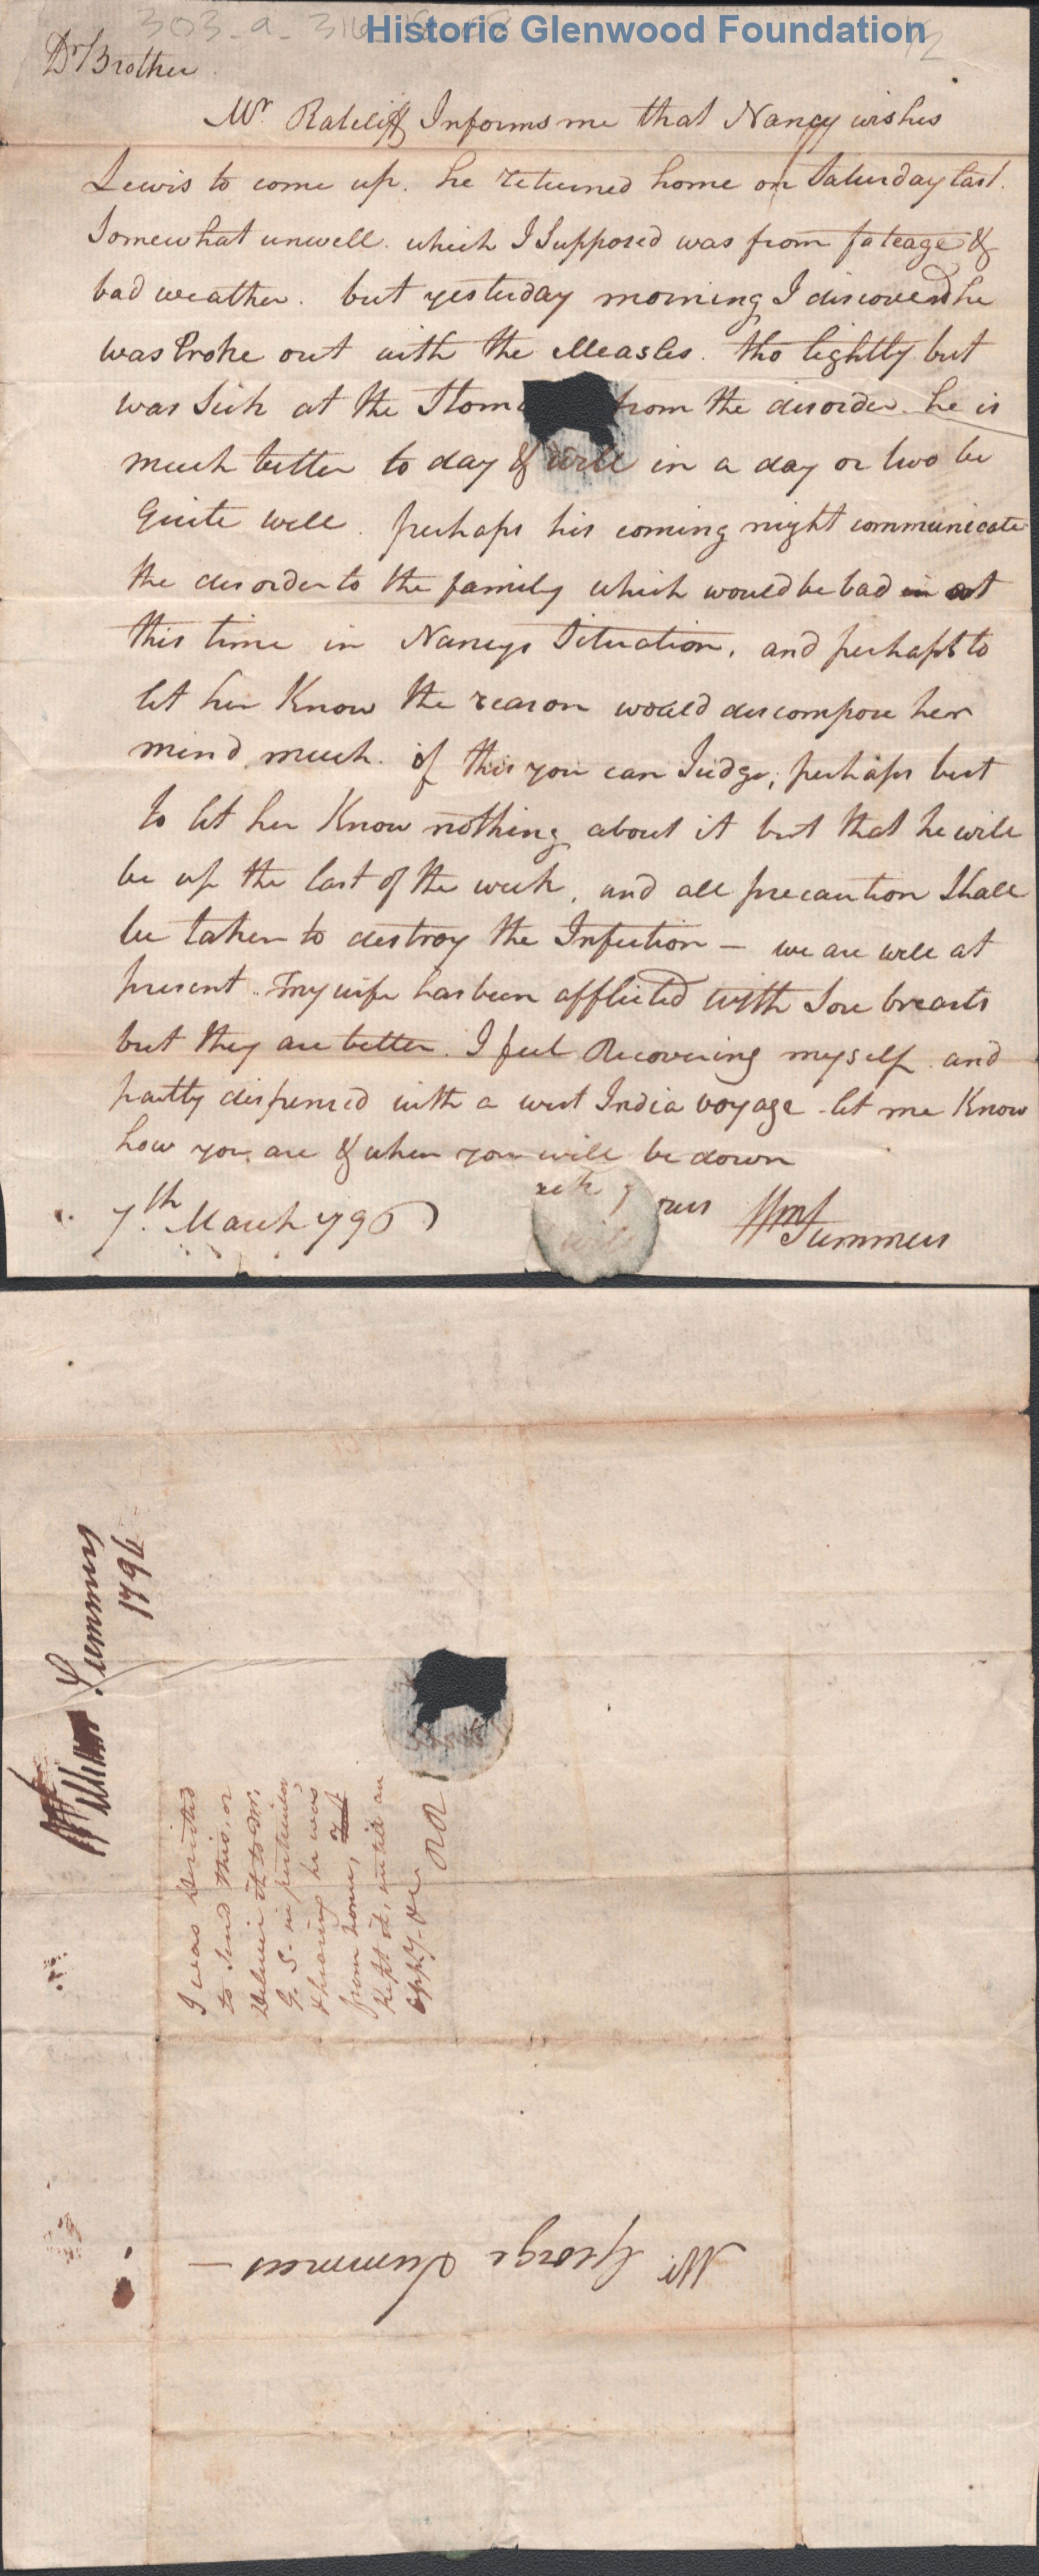 303-a-316
Historic Glenwood Foundation
Dr Brother
Mr. Ratcliff Informs me that Nancy wishes
Lewis to come up. he returned home on Saturday last.
Somewhat unwell. which I Supposed was from fateage &
bad weather. but yesterday morning I discoverd he
was broke out with the Measles. tho lightly but
was Sick at the Stom from the disorder. he is
much better to day & will in a day or two be
Quite well. perhaps his coming might communicate
the disorder to the family which would be bad at
this time in Nancys Situation, and perhaps to
let her Know the reason would discompose her
mind much. of this you can Judge; perhaps best
to let her Know nothing about it but that he will
be up the last of the week, and all precaution Shall
be taken to destroy the Infection — we are well at
present. my wife has been afflicted with Sore breasts
but they are better. I feel Recovering myself and
partly dispensed with a west India voyage. let me Know
how you are & when you will be down
7th. March 1796
Wm Summers
William Summers
1794
I was desired
to send this, or
deliver it to Mr.
G. S. in particular,
& hearing he was
from home, I
kept it, until an
oppty. &c
RR
Mr. George Summers —